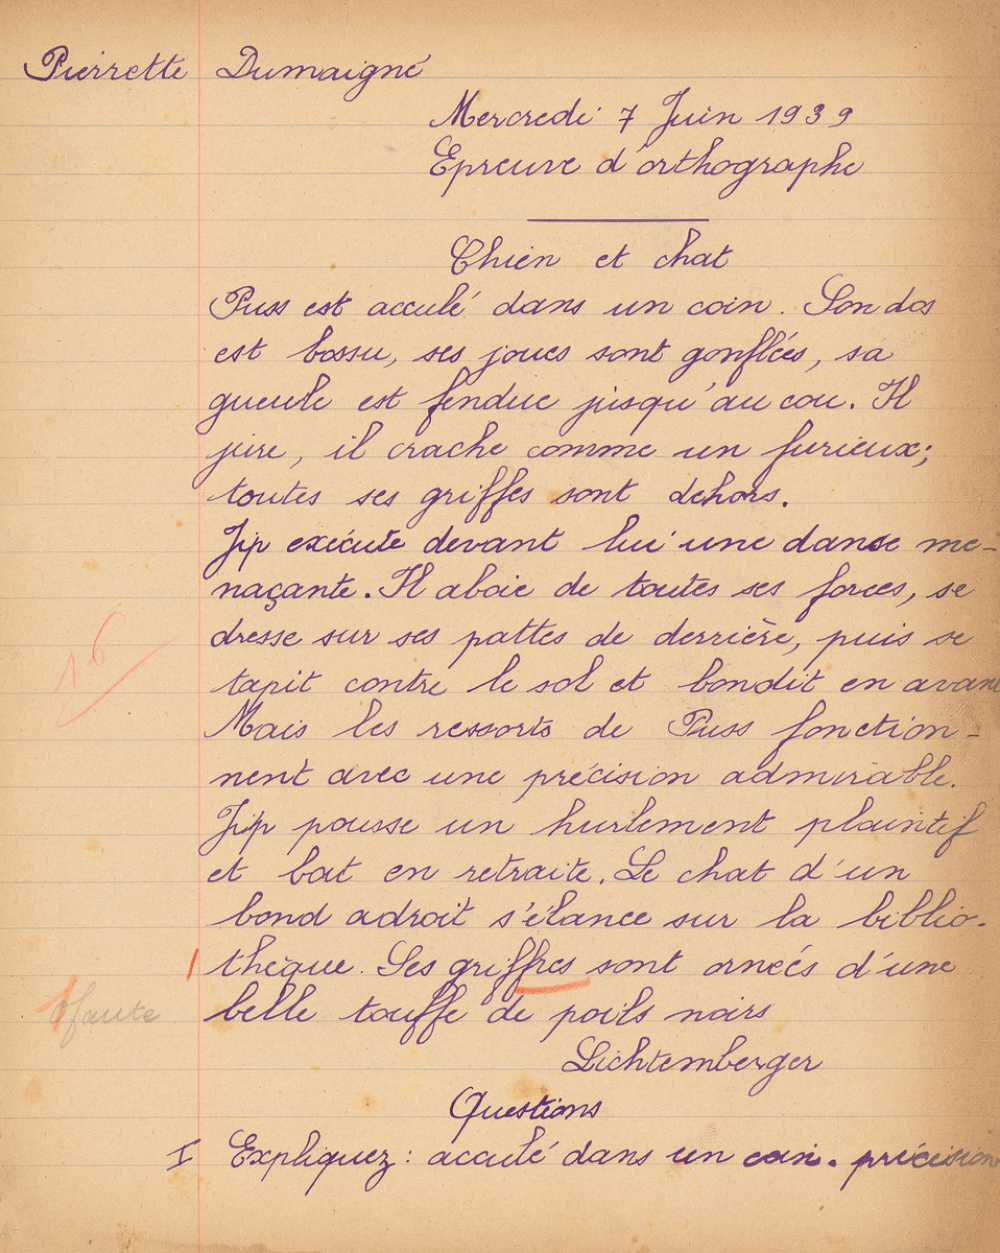 Pierrette Dumaigné
Mercredi 7 Juin 1939
Epreuve d'orthographe
Chien et chat
Puss est acculé dans un coin. Son dos
est bossu, ses joues sont gonflées, sa
gueule est fendue jusqu'au cou. Il
jure, il crache comme un furieux;
toutes ses griffes sont dehors.
Jip exécute devant lui une danse me-
naçante. Il aboie de toutes ses forces, se
dresse sur ses pattes de derrière, puis se
16
tapit contre le sol et bondit en avant
Mais les ressorts de Puss fonction-
nent avec une précision admirable.
Jip pousse un hurlement plaintif
et bat en retraite. Le chat d'un
bond adroit s'élance sur la biblio-
thèque. Ses griffres sont ornées d'une
1 faute
belle touffe de poils noirs
Lichtemberger
Questions
I Expliquez : acculé dans un coin. précision